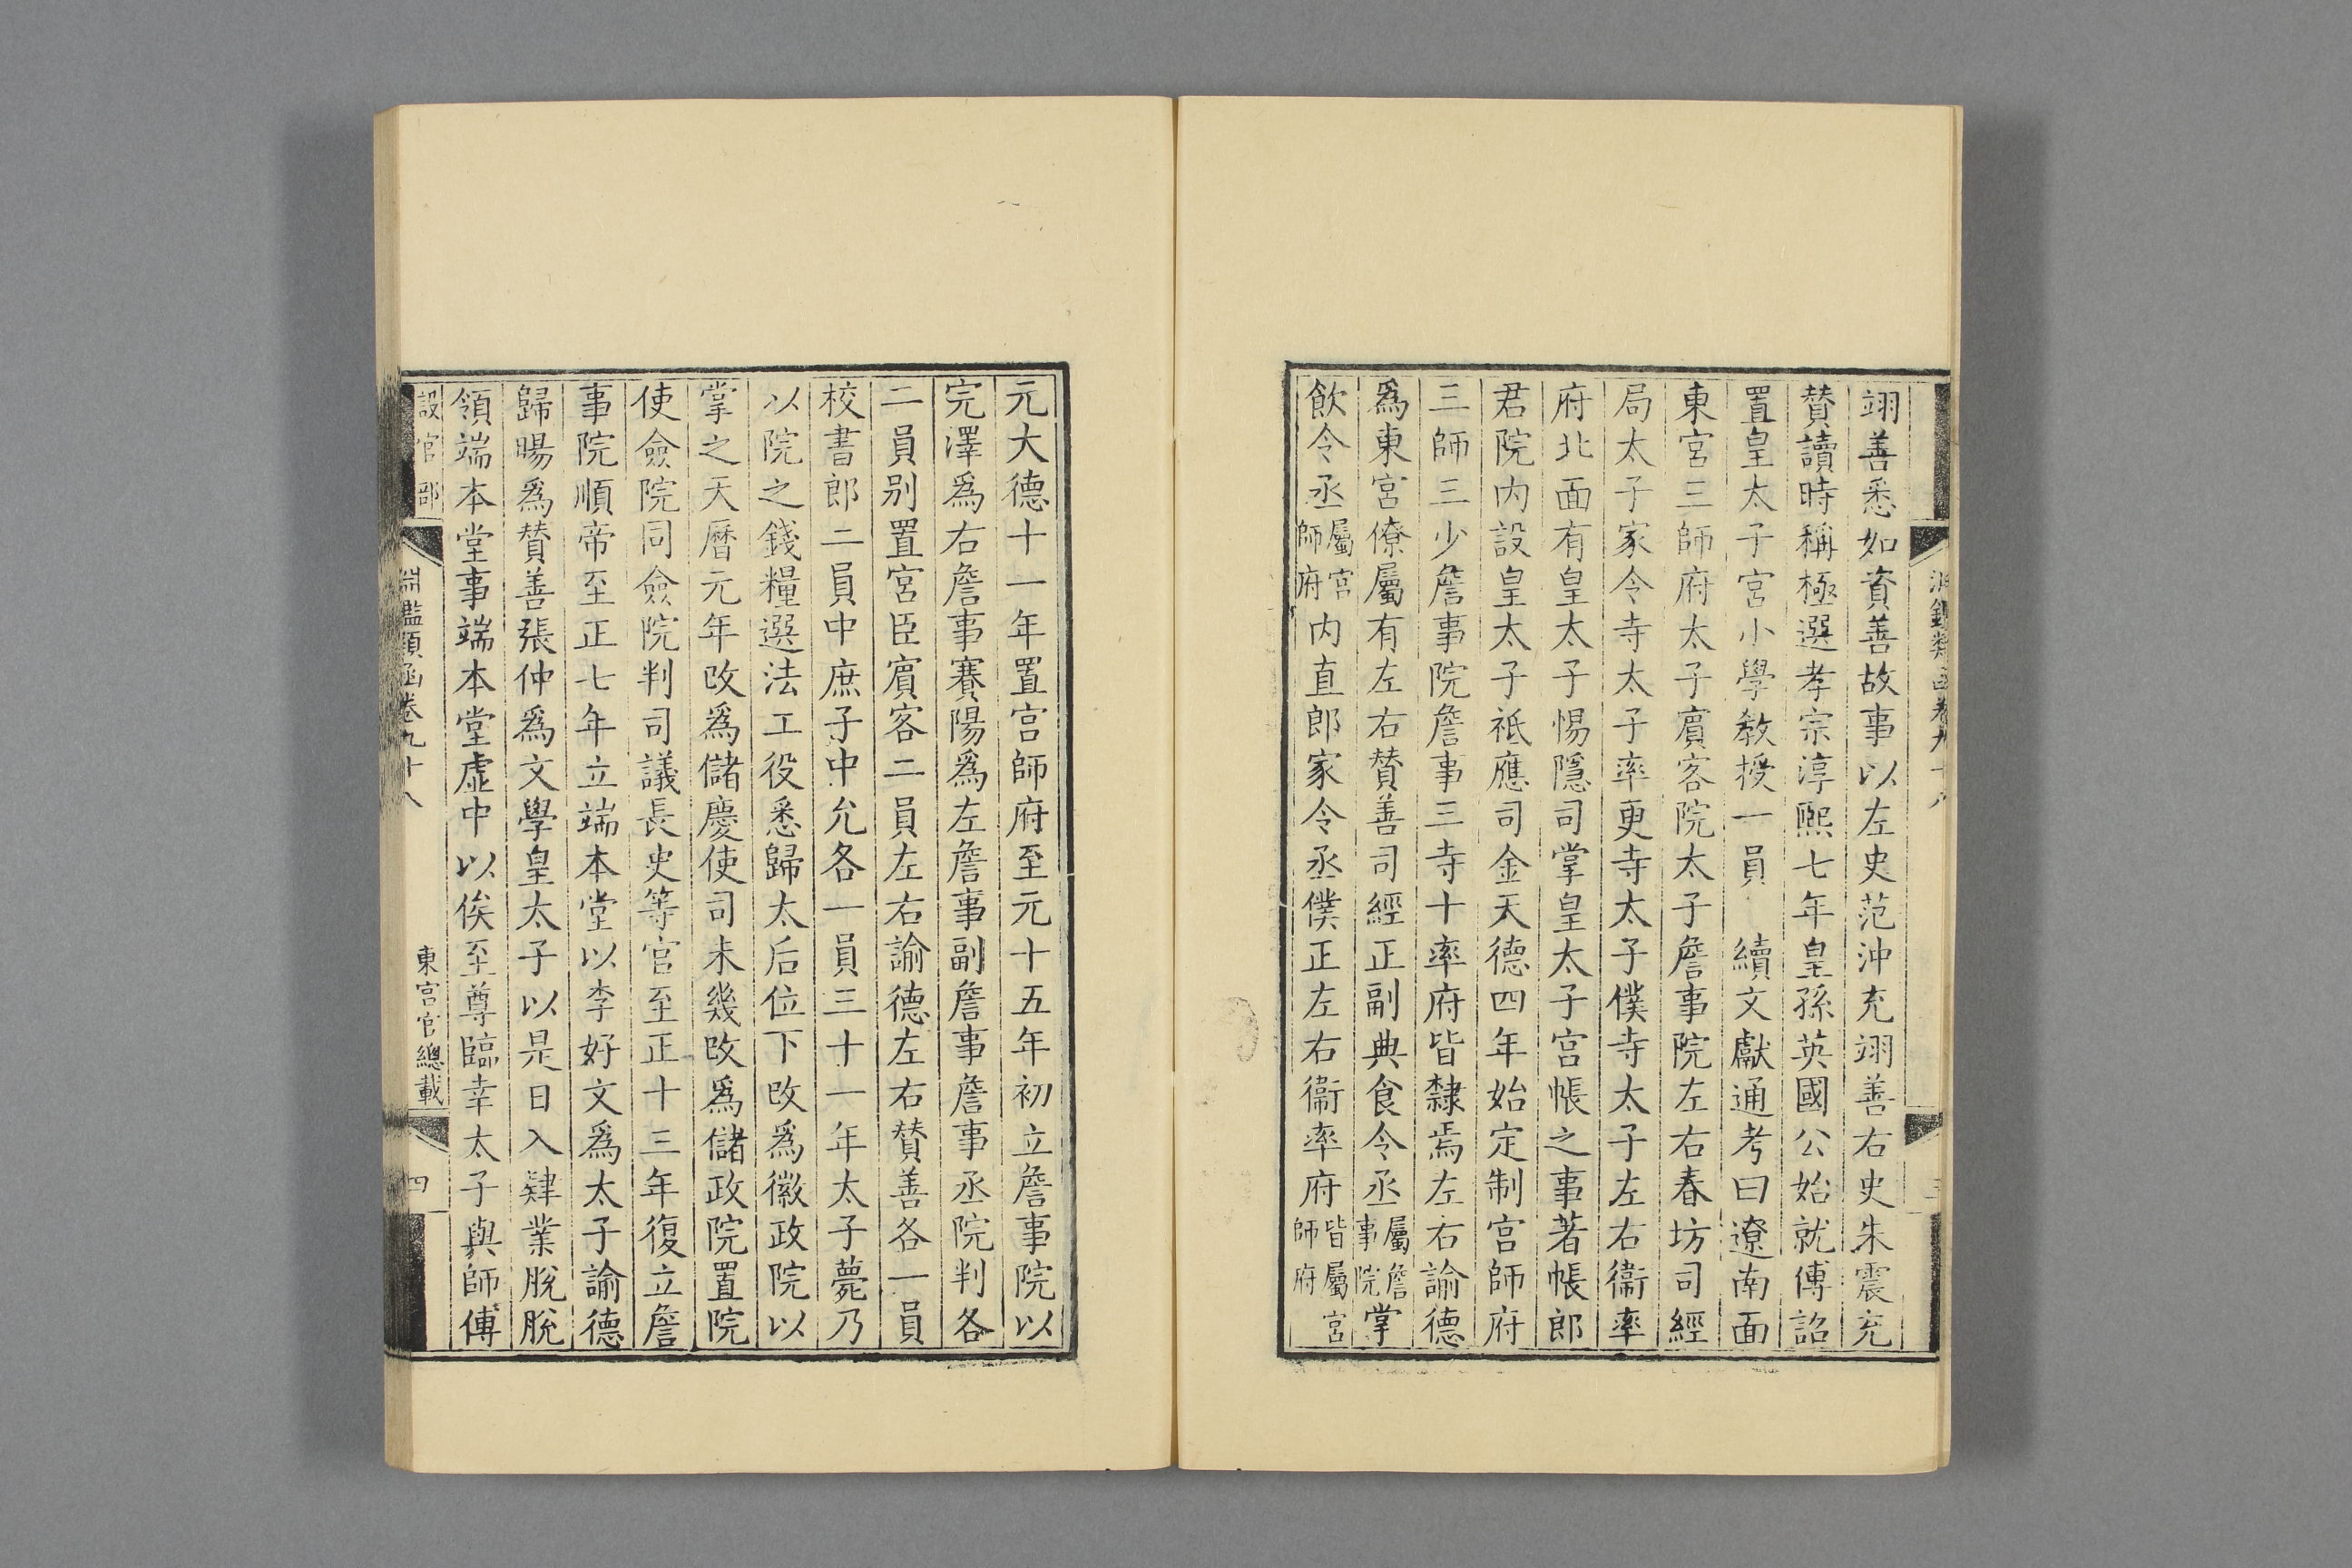 翊善悉如資善故事以左史范沖充翊善右史朱震充
賛讀時稱極選孝宗淳熙七年皇孫英國公始就傅詔
置皇太子宮小學教授一員　續文獻通考曰遼南面
東宮三師府太子賓客院太子詹事院左右春坊司經
局太子家令寺太子率更寺太子僕寺太子左右衞率
府北面有皇太子惕隱司掌皇太子宮帳之事著帳郎
君院内設皇太子祗應司金天德四年始定制宮師府
三師三少詹事院詹事三寺十率府皆隸焉左右諭德
爲東宮僚屬有左右賛善司經正副典食令丞屬詹事院掌
飲令丞屬宮師府内直郎家令丞僕正左右衞率府皆屬宮師府
元大德十一年置宮師府至元十五年初立詹事院以
完澤爲右詹事賽陽爲左詹事副詹事詹事丞院判各
二員别置宮臣賓客二員左右諭德左右賛善各一員
校書郎二員中庶子中允各一員三十一年太子薨乃
以院之錢糧選法工役悉歸太后位下改爲徽政院以
掌之天曆元年改爲儲慶使司未幾改爲儲政院置院
使僉院同僉院判司議長史等官至正十三年復立詹
事院順帝至正七年立端本堂以李好文爲太子諭德
歸暘爲賛善張仲爲文學皇太子以是日入肄業脫脫
領端本堂事端本堂虛中以俟至尊臨幸太子與師傅
設官部
淵鑑類函卷九十八
東宮官總載
四